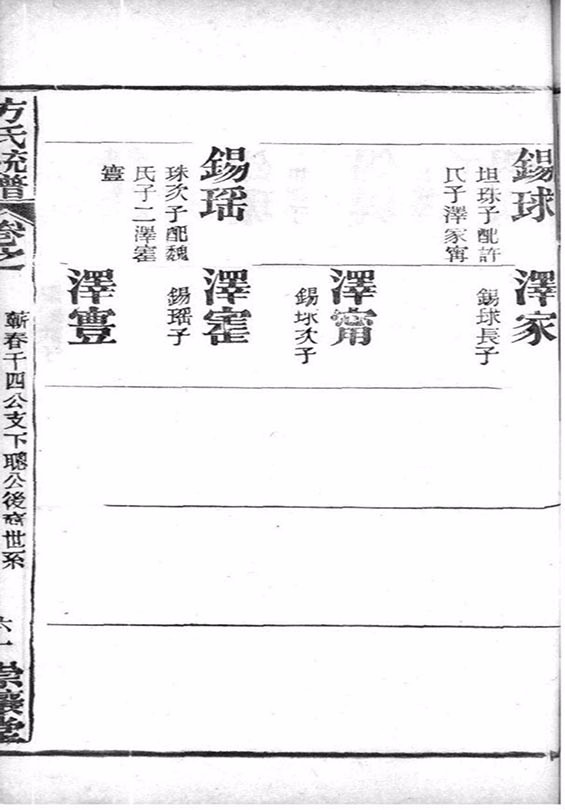 錫球
坦珠子配許
氏子澤家甯
錫瑶
珠次子配魏
氏子二澤寉
壴
澤家
錫球長子
澤甯
錫球次子
澤寉
錫瑶子
方氏統譜
卷之
蘄春千四公支下聰公後裔世系
六一